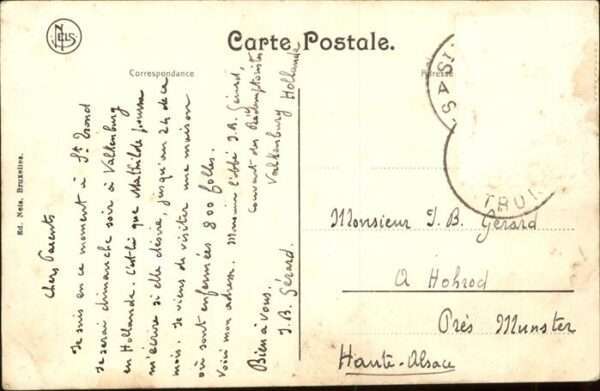 NELS
Carte Postale.
Correspondance
Adresse
Ed. Nels, Bruxelles.
Chers Parents
Je suis en ce moment à St. Trond
Je serai dimanche soir à Valkenburg
en Hollande. C'est là que Mathilde pourra
m'écrire si elle désire, jusqu'au 24 de ce
mois. Je viens de visiter une maison
où sont enfermées 800 folles.
Voici mon adresse. Monsieur l'abbé J. B. Gérard,
couvent des Rédemptoristes
Valkenburg Hollande
Bien à vous.
J. B. Gérard.
ST.
TRUI
Monsieur J. B. Gérard
A Hohrod
Près Munster
Haute-Alsace